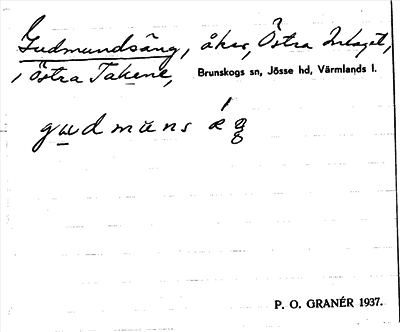 Gudmundsäng, åker, Östra Inlaget,
i Östra Takene, Brunskogs sn, Jösse hd, Värmlands l.
P. O. GRANÉR 1937.